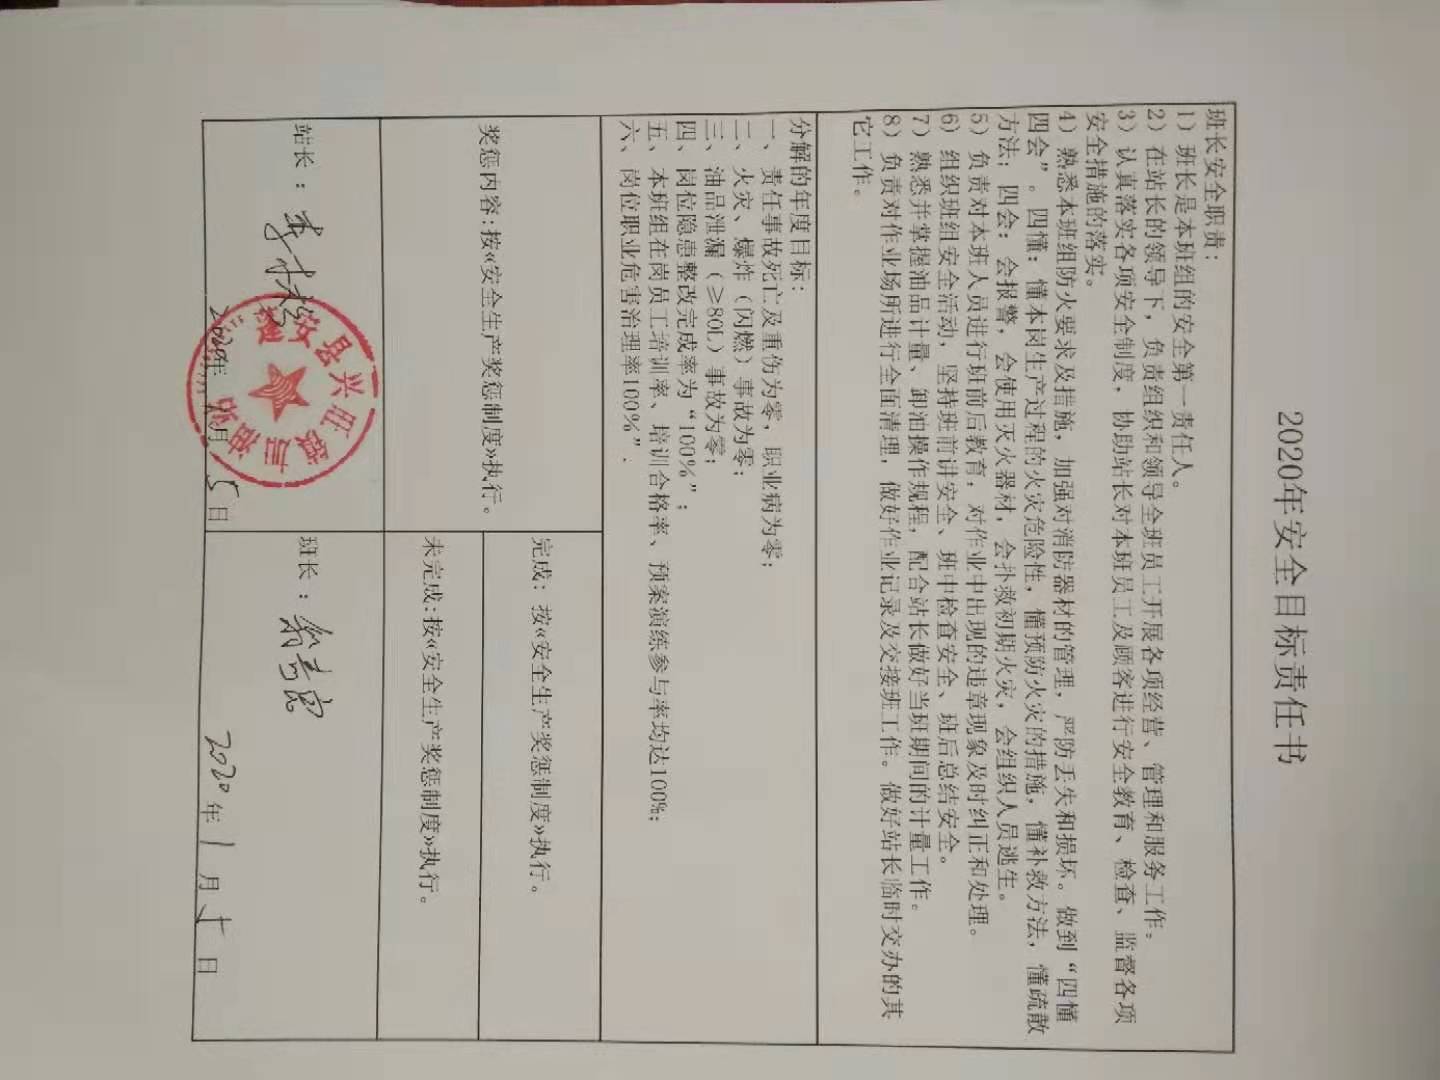 2020年安全目标责任书
班长安全职责：
1）班长是本班组的安全第一责任人。
2）在站长的领导下，负责组织和领导全班员工开展各项经营、管理和服务工作。
3）认真落实各项安全制度，协助站长对本班员工及顾客进行安全教育、检查、监督各项
安全措施的落实。
4）熟悉本班组防火要求及措施，加强对消防器材的管理，严防丢失和损坏。做到“四懂
四会”。四懂：懂本岗生产过程的火灾危险性，懂预防火灾的措施，懂补救方法，懂疏散
方法；四会：会报警，会使用灭火器材，会扑救初期火灾，会组织人员逃生。
5）负责对本班人员进行班前后教育，对作业中出现的违章现象及时纠正和处理。
6）组织班组安全活动，坚持班前讲安全、班中检查安全、班后总结安全。
7）熟悉并掌握油品计量、卸油操作规程，配合站长做好当班期间的计量工作。
8）负责对作业场所进行全面清理，做好作业记录及交接班工作。做好站长临时交办的其
它工作。
分解的年度目标：
一、责任事故死亡及重伤为零，职业病为零；
二、火灾、爆炸（闪燃）事故为零；
三、油品泄漏（≥80L）事故为零；
四、岗位隐患整改完成率为“100%”；
五、本班组在岗员工培训率、培训合格率、预案演练参与率均达100%；
六、岗位职业危害治理率100%”.
奖惩内容：按《安全生产奖惩制度》执行。
完成：按《安全生产奖惩制度》执行。
未完成：按《安全生产奖惩制度》执行。
站长：
县兴旺
加油
2020年 月5日
班长：
2020年1月5日